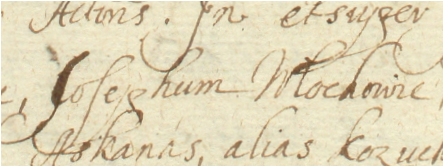 Actins. In et super
Josephum Mlochowic
Askanas, alias kozuch